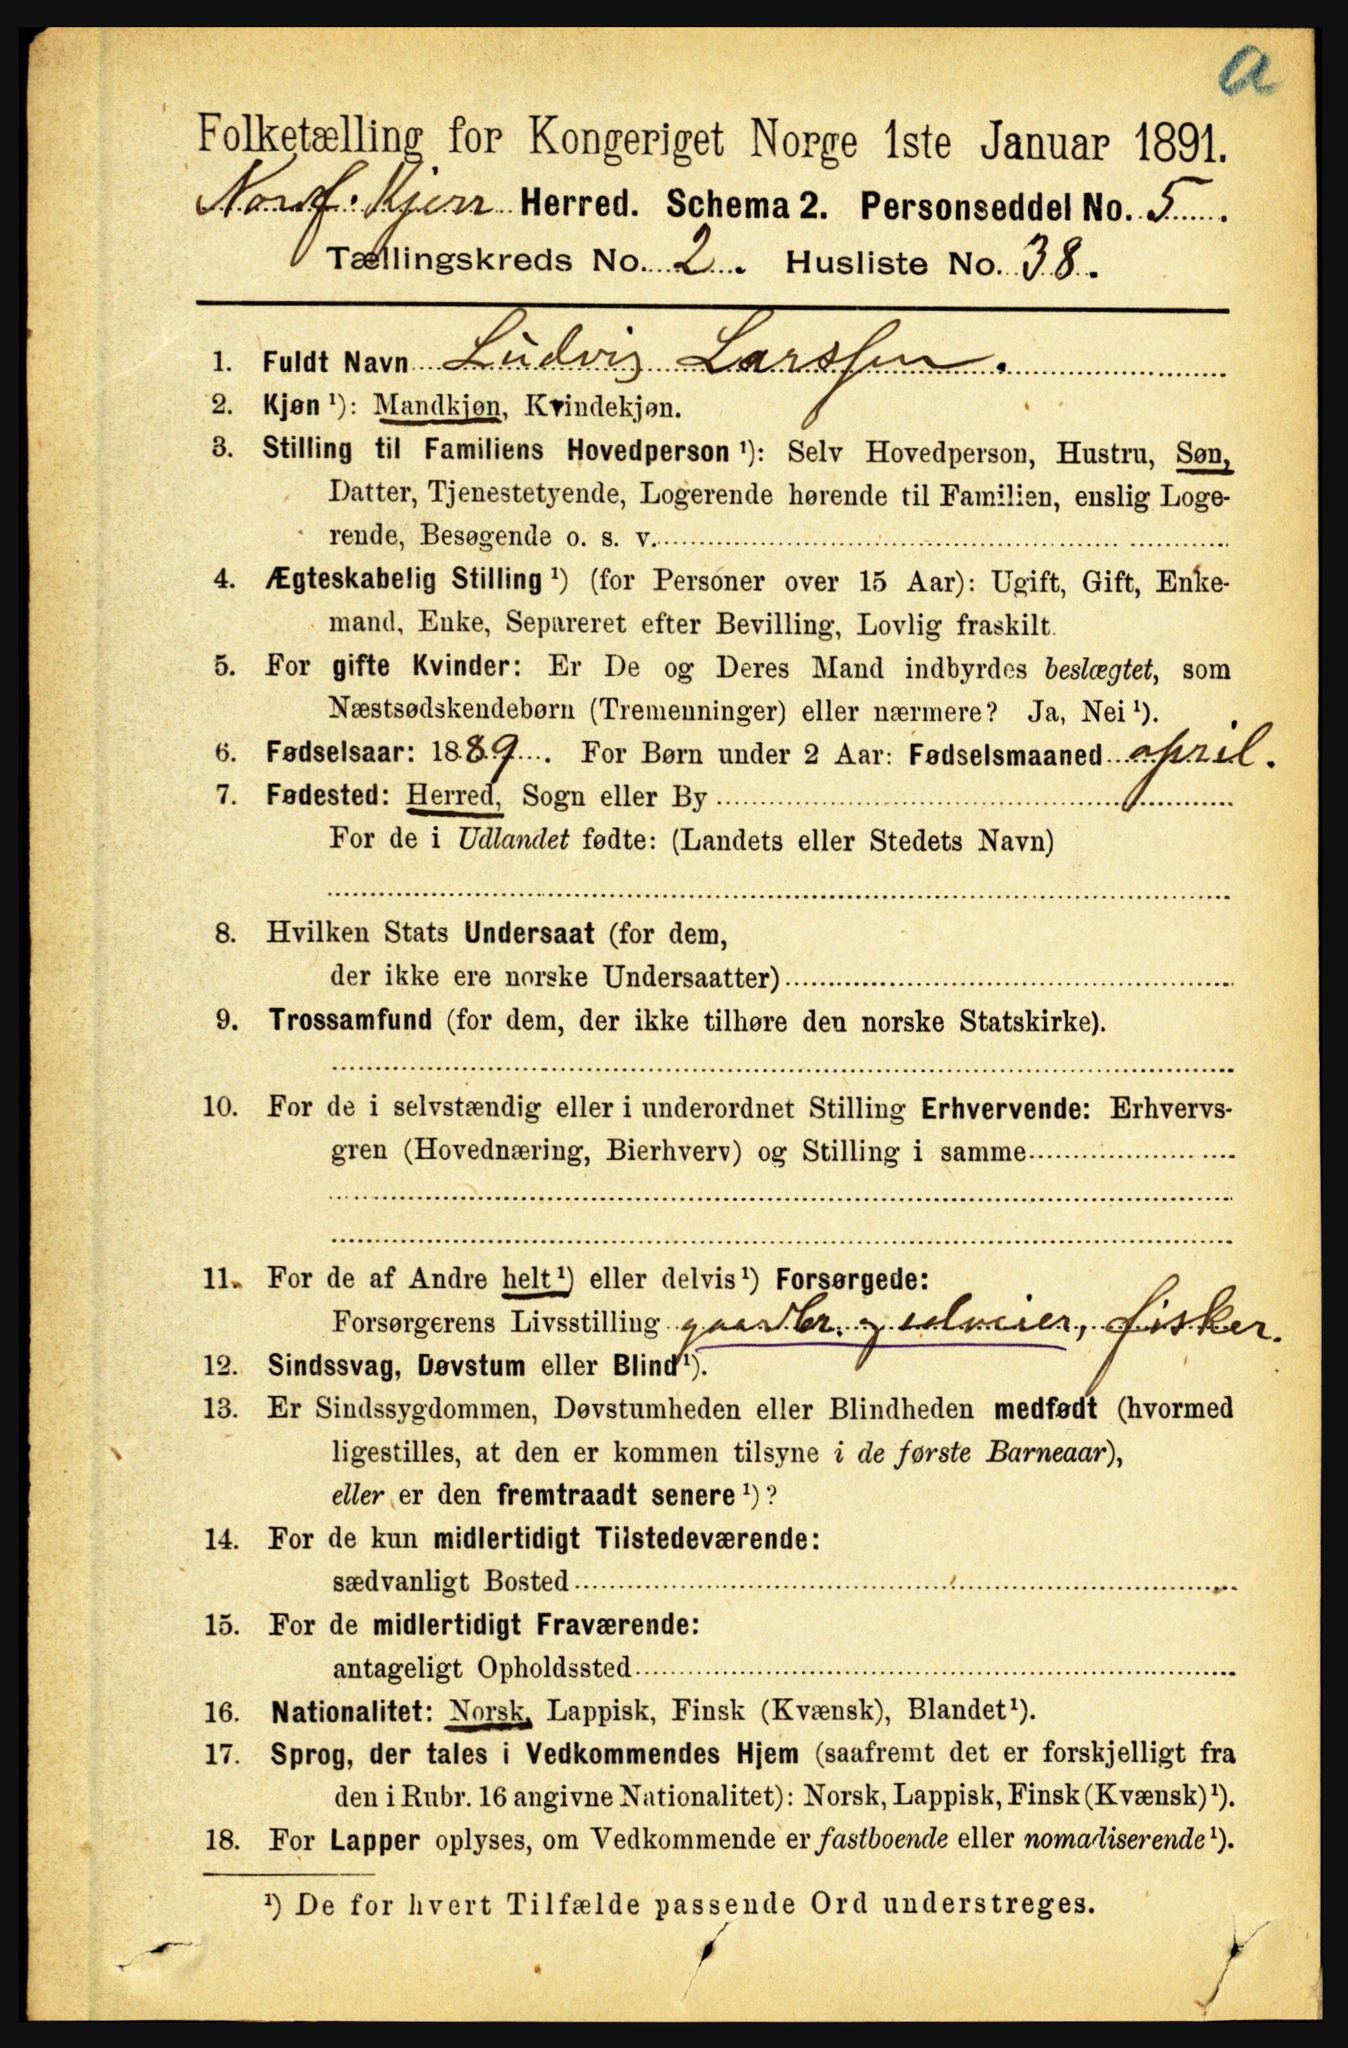 a
Folketælling for Kongeriget Norge 1ste Januar 1891.
Nordf. Kjerr Herred. Schema 2. Personseddel No. 5.
Tællingskreds No. 2. Husliste No. 38.
1. Fuldt Navn Ludvig Larssen.
2. Kjøn ¹): Mandkjøn, Kvindekjøn.
3. Stilling til Familiens Hovedperson ¹): Selv Hovedperson, Hustru, Søn,
Datter, Tjenestetyende, Logerende hørende til Familien, enslig Loge-
rende, Besøgende o. s. v.
4. Ægteskabelig Stilling ¹) (for Personer over 15 Aar): Ugift, Gift, Enke-
mand, Enke, Separeret efter Bevilling, Lovlig fraskilt.
5. For gifte Kvinder: Er De og Deres Mand indbyrdes beslægtet, som
Næstsødskendebørn (Tremenninger) eller nærmere? Ja, Nei ¹).
6. Fødselsaar: 1889. For Børn under 2 Aar: Fødselsmaaned april.
7. Fødested: Herred, Sogn eller By
For de i Udlandet fødte: (Landets eller Stedets Navn)
8. Hvilken Stats Undersaat (for dem,
der ikke ere norske Undersaatter)
9. Trossamfund (for dem, der ikke tilhøre den norske Statskirke).
10. For de i selvstændig eller i underordnet Stilling Erhvervende: Erhvervs-
gren (Hovednæring, Bierhverv) og Stilling i samme
11. For de af Andre helt ¹) eller delvis ¹) Forsørgede:
Forsørgerens Livsstilling gaardbr. og selveier, fisker.
12. Sindssvag, Døvstum eller Blind ¹).
13. Er Sindssygdommen, Døvstumheden eller Blindheden medfødt (hvormed
ligestilles, at den er kommen tilsyne i de første Barneaar),
eller er den fremtraadt senere ¹)?
14. For de kun midlertidigt Tilstedeværende:
sædvanligt Bosted
15. For de midlertidigt Fraværende:
antageligt Opholdssted
16. Nationalitet: Norsk, Lappisk, Finsk (Kvænsk), Blandet ¹).
17. Sprog, der tales i Vedkommendes Hjem (saafremt det er forskjelligt fra
den i Rubr. 16 angivne Nationalitet): Norsk, Lappisk, Finsk (Kvænsk) ¹).
18. For Lapper oplyses, om Vedkommende er fastboende eller nomadiserende ¹).
¹) De for hvert Tilfælde passende Ord understreges.